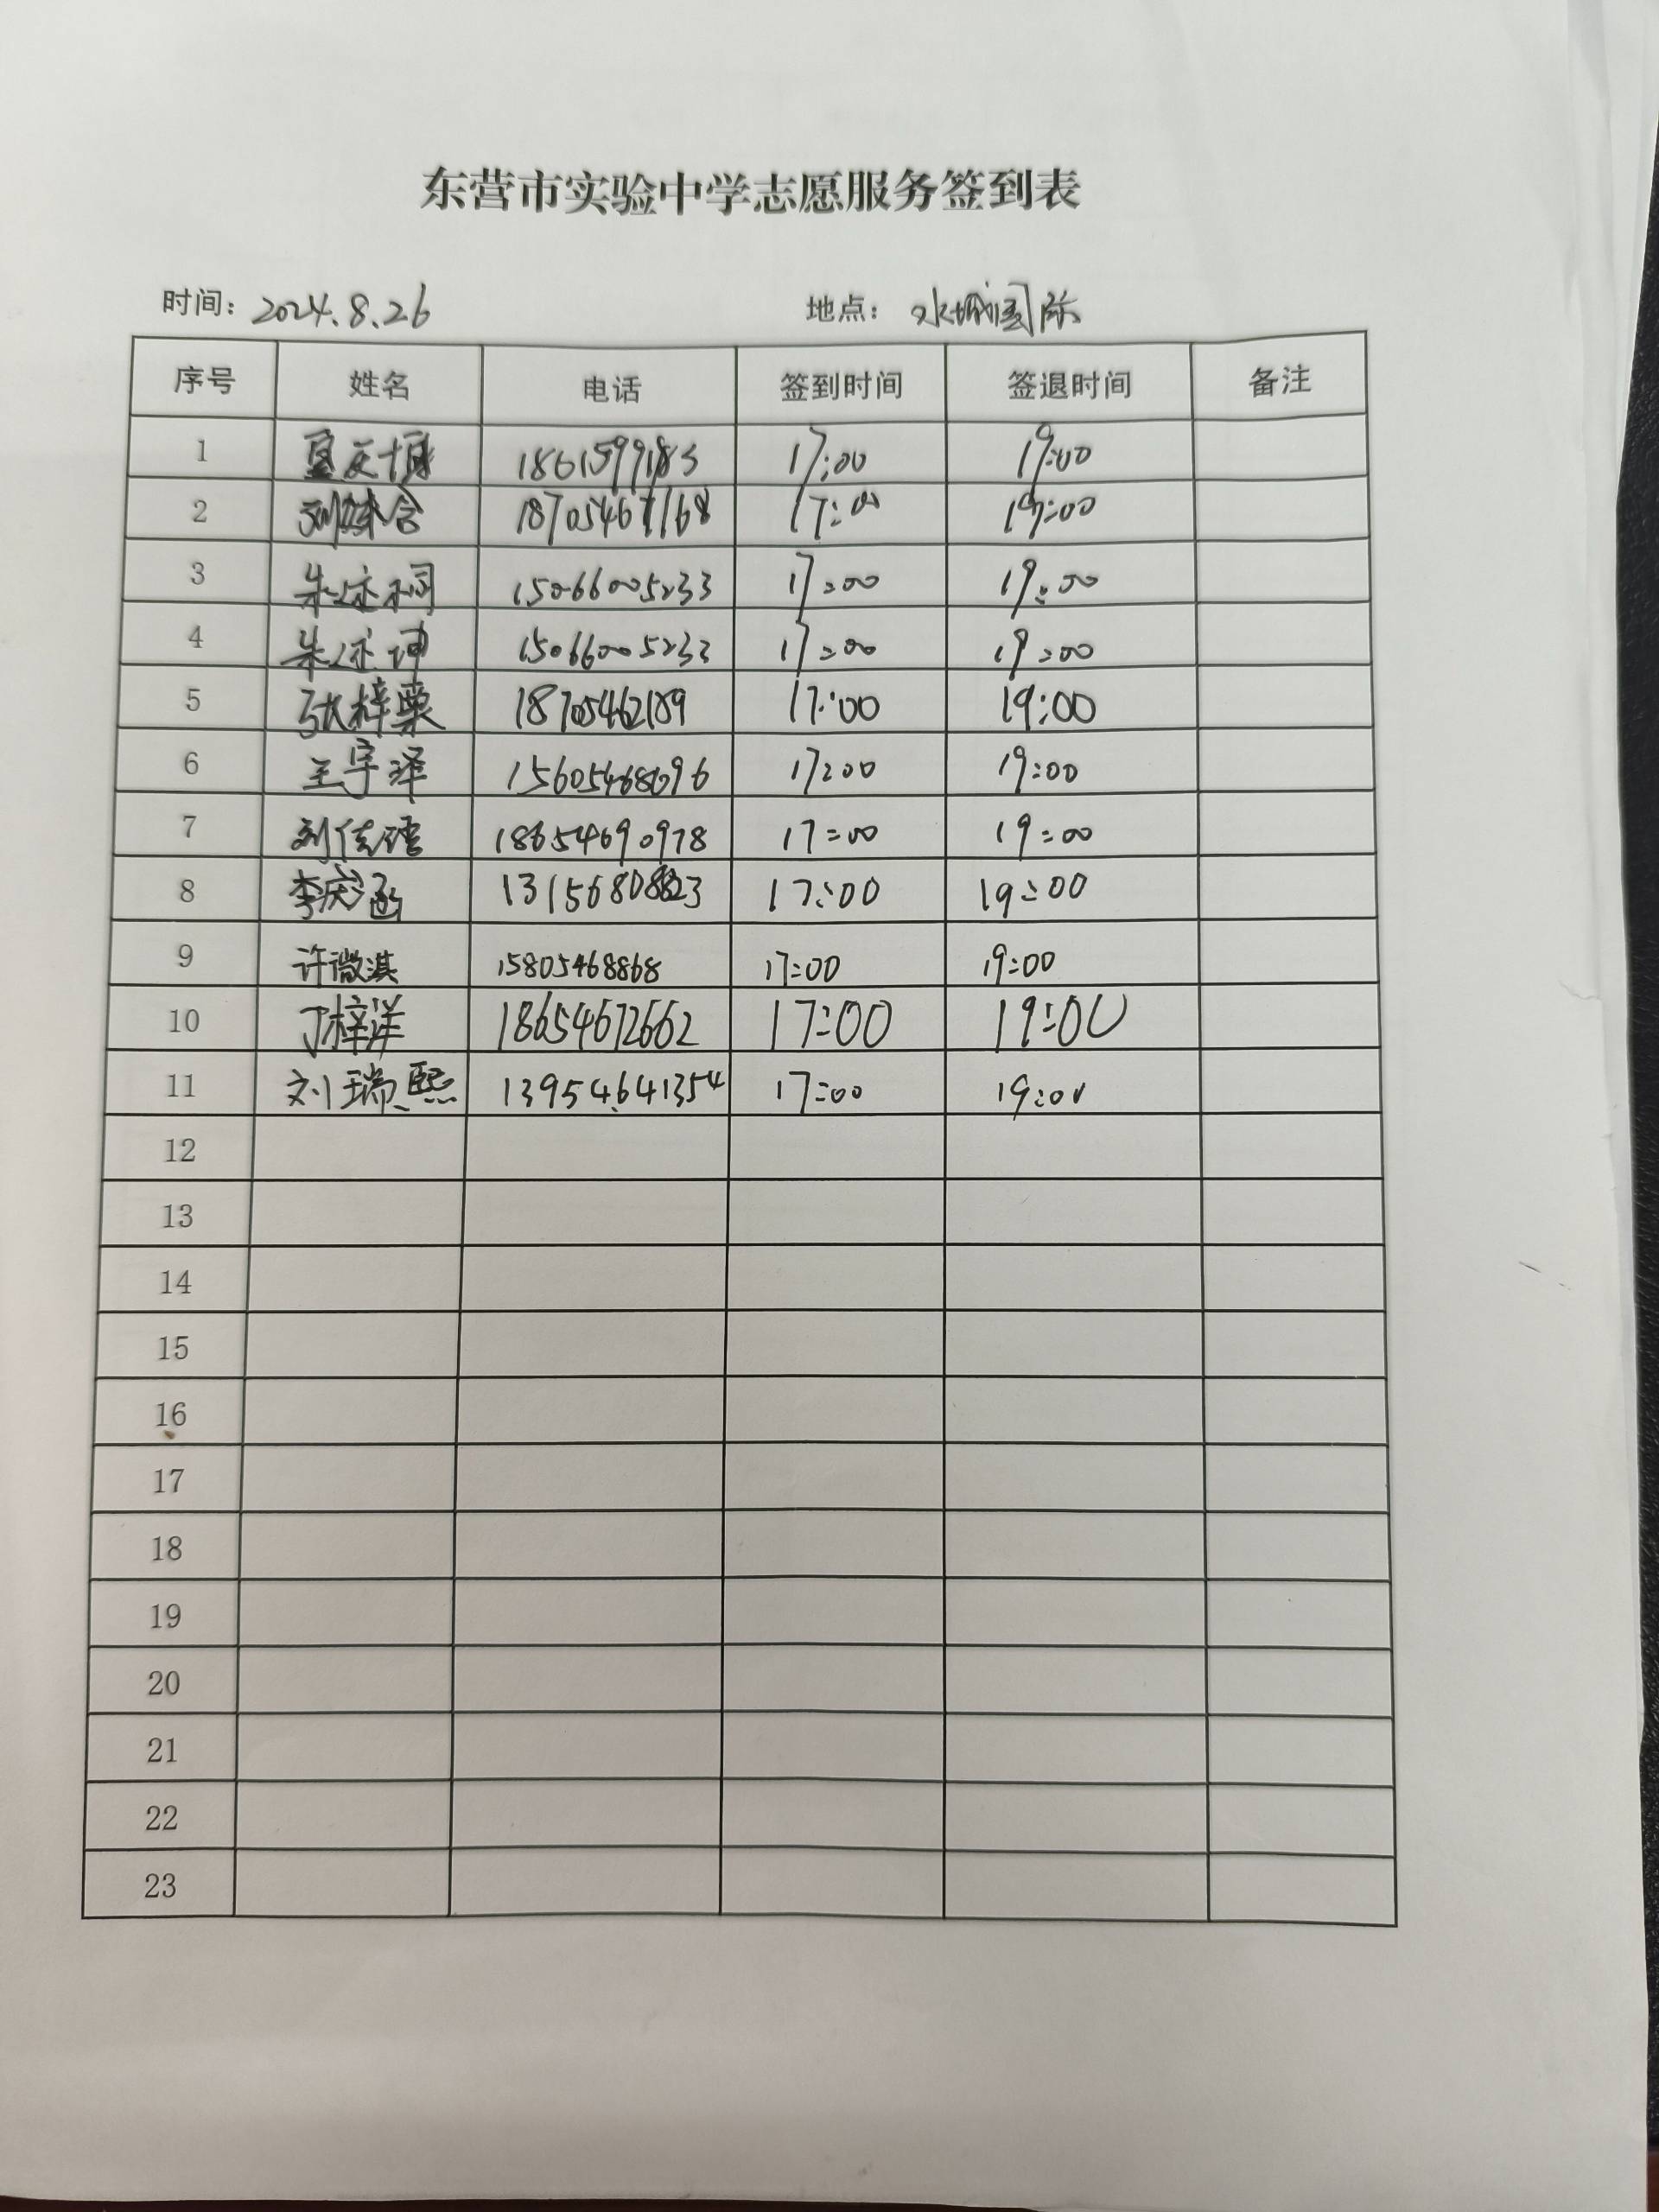 东营市实验中学志愿服务签到表
时间：2024.8.26 地点：水城国际
序号 姓名 电话 签到时间 签退时间 备注
1 17:00 19:00
2 18705467168 17:00 19:00
3 朱述桐 15066005233 17:00 19:00
4 朱述坤 15066005233 17:00 19:00
5 张梓栗 18705462189 17:00 19:00
6 王宇泽 15605468696 17:00 19:00
7 刘佳 18654690978 17:00 19:00
8 李庆涵 17:00 19:00
9 许微淇 15805468868 17:00 19:00
10 丁梓洋 18654672662 17:00 19:00
11 刘瑞熙 13954641354 17:00 19:00
12
13
14
15
16
17
18
19
20
21
22
23